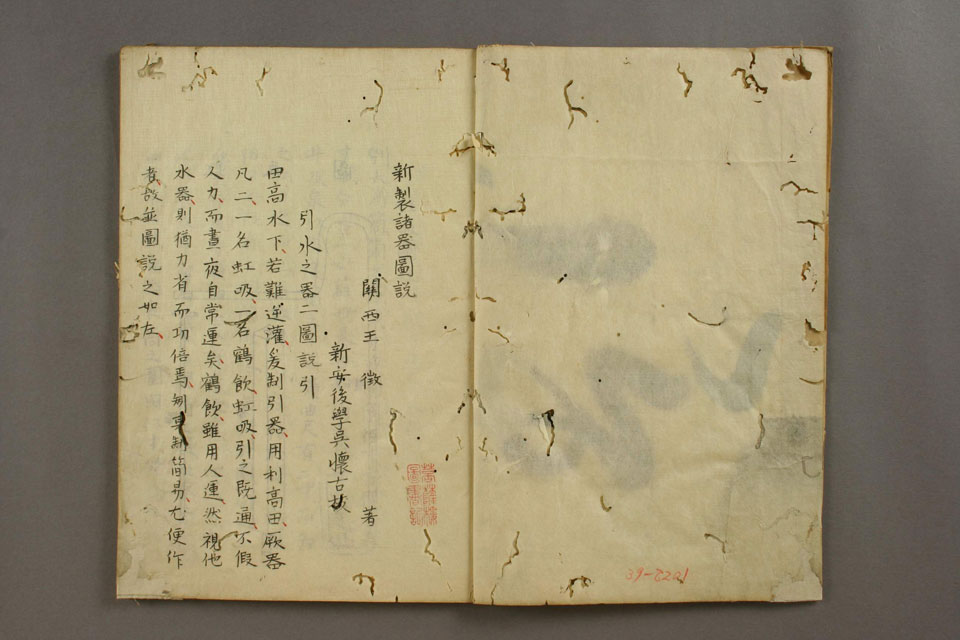 新製諸器圖說
關西王徵著
新安後學吳懷古校
引水之器二圖說引
田高水下若難逆灌爰制引器用利高田厥器
凡二一名虹吸一名鶴飲虹吸引之既通不假
人力而晝夜自常運矣鶴飲雖用人運然視他
水器則猶力省而功倍焉矧其制簡易尤便作
者故並圖說之如左